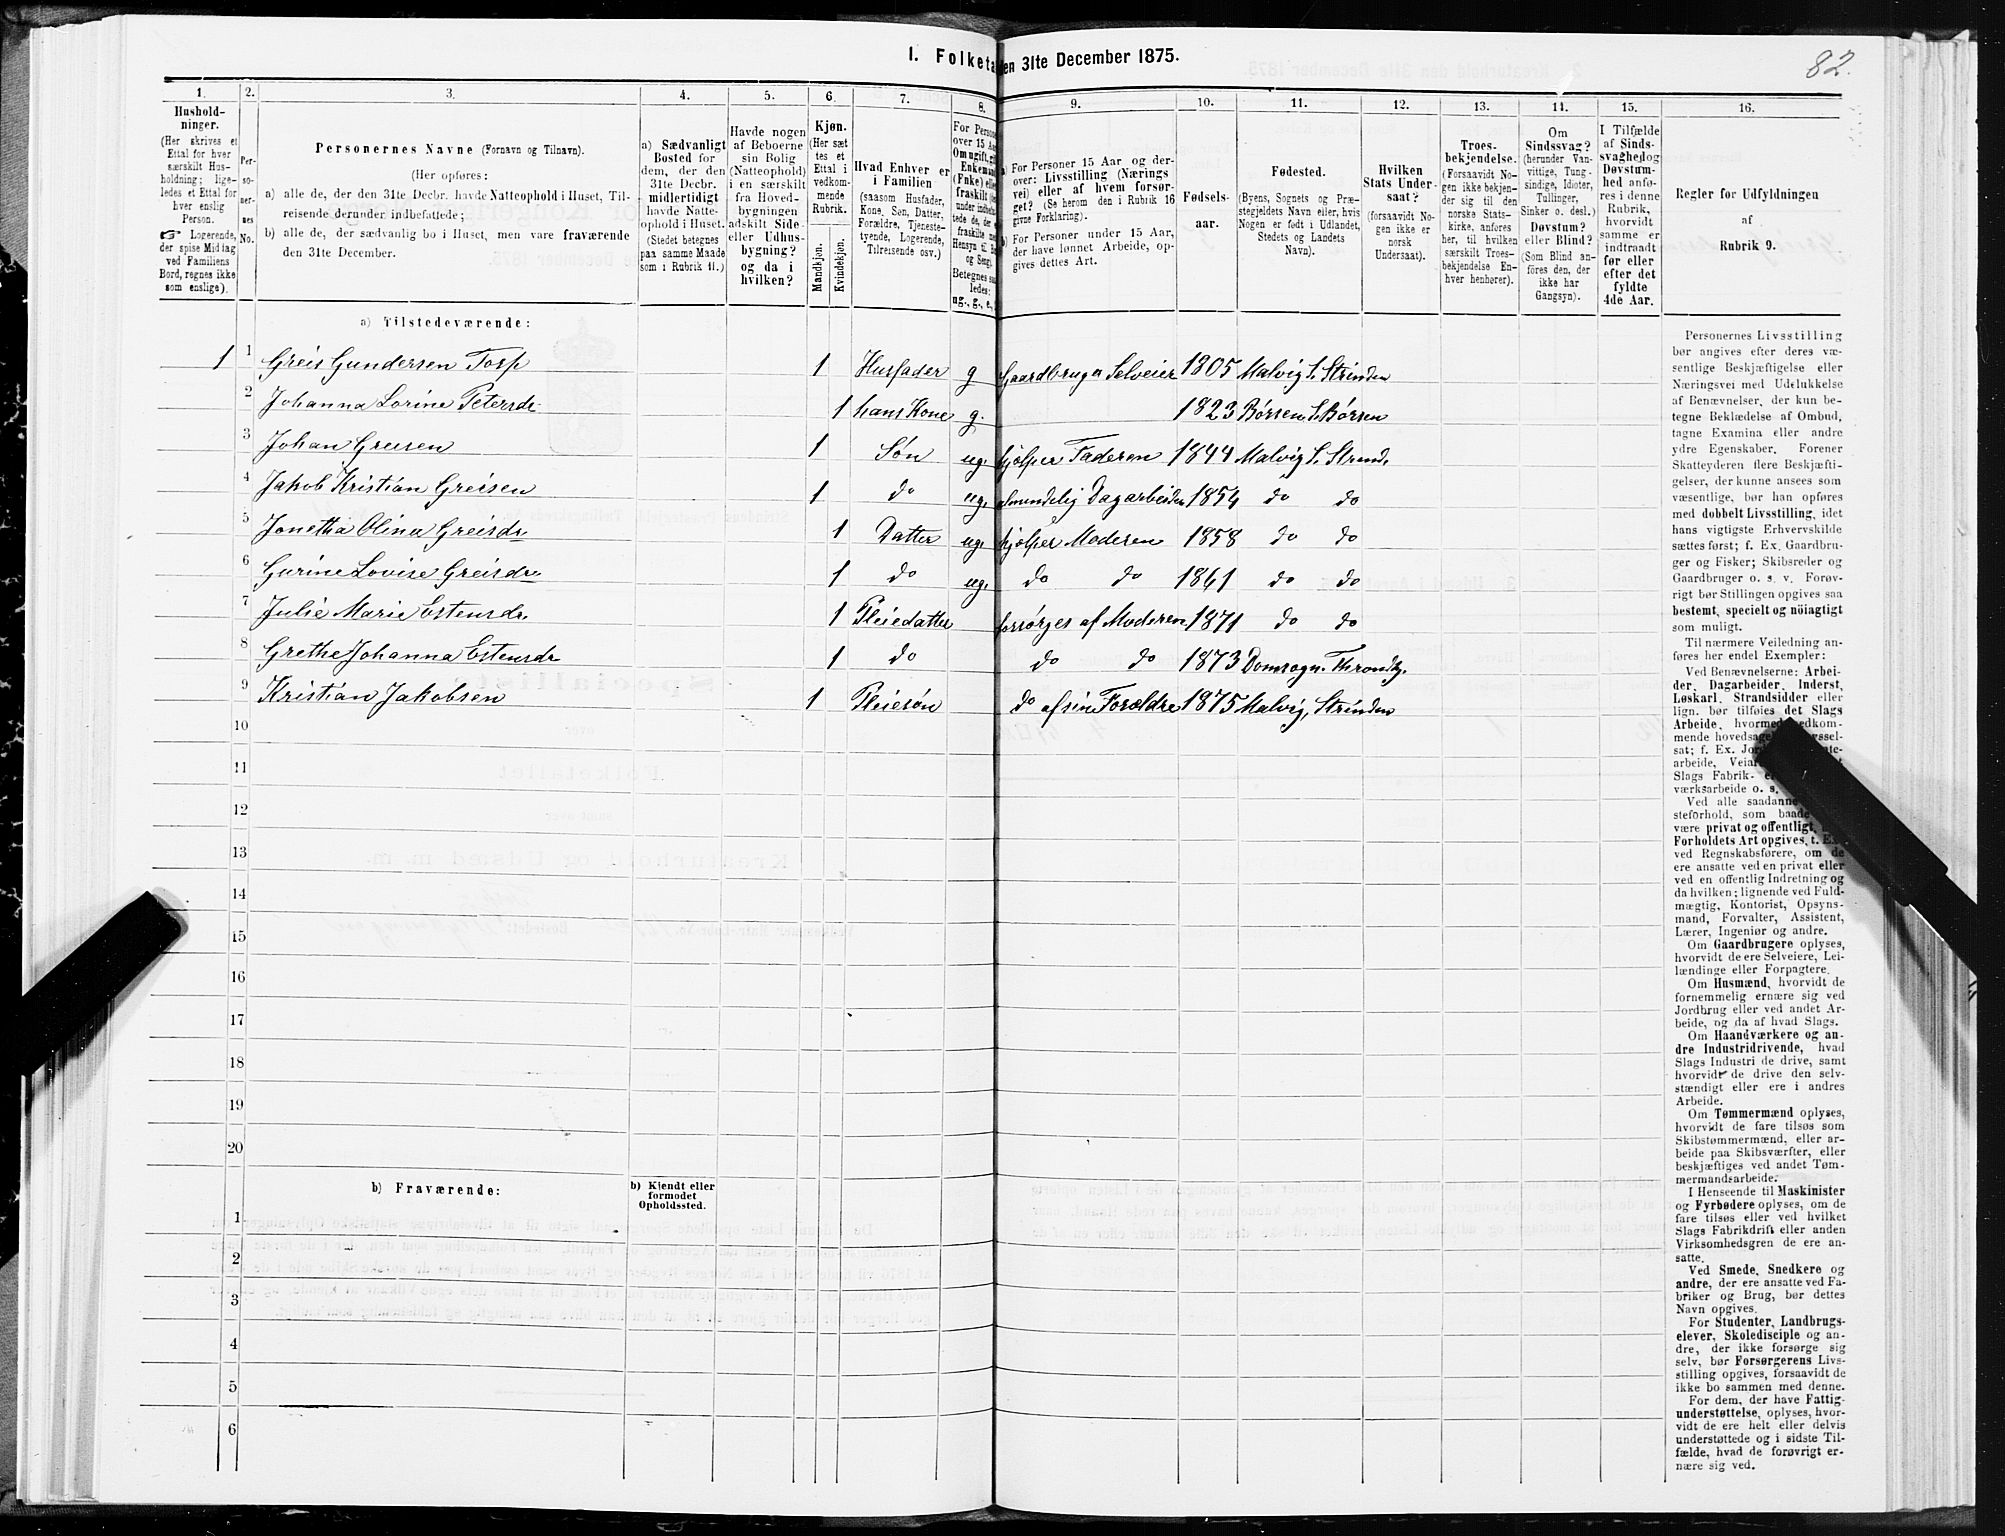 I. Folketa en 31te December 1875.
82.
1. 2. 3. 4. 5. 6. 7. 8. 9. 10. 11. 12. 13. 14. 15. 16.
Hushold-
ninger.
(Her skrives et
Ettal for hver
særskilt Hus-
holdning; lige-
ledes et Ettal for
hver enslig
Person.
☞ Logerende,
der spise Middag
ved Familiens
Bord, regnes ikke
som enslige).
Per-
so-
ner-
nes
No.
Personernes Navne (Fornavn og Tilnavn).
(Her opføres:
a) alle de, der den 31te Decbr. havde Natteophold i Huset, Til-
reisende derunder indbefattede;
b) alle de, der sædvanlig bo i Huset, men vare fraværende
den 31te December.
a) Sædvanligt
Bosted for
dem, der den
31te Decbr.
midlertidigt
havde Natte-
ophold i Huset.
(Stedet betegnes
paa samme Maade
som i Rubrik 11.)
Havde nogen
af Beboerne
sin Bolig
(Natteophold)
i en særskilt
fra Hoved-
bygningen
adskilt Side-
eller Udhus-
bygning?
og da i
hvilken?
Kjøn.
(Her sæt
tes et
Ettal i
vedkom-
mende
Rubrik.
Mandkjøn.
Kvindekjøn.
Hvad Enhver er
i Familien
(saasom Husfader,
Kone, Søn, Datter,
Forældre, Tjeneste-
tyende, Logerende,
Tilreisende osv.)
For Persone
over 15 Aar
Om ugift, gi
Enkeman
(Fnke) elle
fraskilt
Hensyn til B
og Seng).
Betegnes
ledes:
ug., g., e.,
a) For Personer 15 Aar og der-
over: Livsstilling (Nærings
vei) eller af hvem forsør-
get? (Se herom den i Rubrik 16
givne Forklaring).
b) For Personer under 15 Aar,
der have lønnet Arbeide, op-
gives dettes Art.
Fødsels-
aar.
Fødested.
(Byens, Sognets og Præ-
stegjeldets Navn eller, hvis
Nogen er født i Udlandet,
Stedets og Landets
Navn).
Hvilken
Stats Under-
saat?
(forsaavidt No-
gen ikke er
norsk
Undersaat).
Troes-
bekjendelse.
(Forsaavidt No-
gen ikke bekjen-
der sig til den
norske Stats-
kirke, anføres
her, til hvilken
særskilt Troes-
bekjendelse En-
hver henhører).
Om
Sindssvag?
(herunder Van-
vittige, Tung-
sindige, Idioter,
Tullinger,
Sinker o. desl.)
Døvstum?
eller Blind?
(Som Blind an-
føres den, der
ikke har
Gangsyn).
I Tilfælde
af Sinds-
svaghed og
Døvstum-
hed anfø-
res i denne
Rubrik,
hvorvidt
samme er
indtraadt
før eller
efter det
fyldte
4de Aar.
Regler for Udfyldningen
af
Rubrik 9.
a) Tilstedeværende:
1 1 Greis Gundersen Torp 1 Husfader g Gaardbruger Selveier 1805 Malvig S. Strinden
2 Johanna Lorine Petersdr 1 hans Kone g. 1823 Børsen S. Børsen
3 Johan Greisen 1 Søn ug. hjelper Faderen 1844 Malvig S. Strind.
4 Jakob Kristian Greisen 1 do ug. almindelig Dagarbeider 1854 do do
5 Jonetha Olina Greisdr 1 Datter ug. hjelper Moderen 1858 do do
6 Gurine Lovise Greisdr 1 do ug. do do 1861 do do
7 Julie Marie Estensdr 1 Pleiedatter forsørges af Moderen 1871 do do
8 Grethe Johanna Estensdr 1 do do do 1873 Domsogn. Throndhj.
9 Kristian Jakobsen 1 Pleiesøn do af sine Forældre 1875 Malvig, Strinden
10
11
12
13
14
15
16
17
18
19
20
b) Fraværende:
b) Kjendt eller
formodet
Opholdssted.
1
2
3
4
5
6
Personernes Livsstilling
bør angives efter deres væ-
sentlige Beskjæftigelse eller
Næringsvei med Udelukkelse
af Benævnelser, der kun be-
tegne Beklædelse af Ombud,
tagne Examina eller andre
ydre Egenskaber. Forener
Skatteyderen flere Beskjæfti-
gelser, der kunne ansees som
væsentlige, bør han opføres
med dobbelt Livsstilling, idet
hans vigtigste Erhvervskilde
sættes først; f. Ex. Gaardbru-
ger og Fisker; Skibsreder og
Gaardbruger o. s. v. Forøv-
rigt bør Stillingen opgives saa
bestemt, specielt og nöiagtigt
som muligt.
Til nærmere Veiledning an-
føres her endel Exempler:
Ved Benævnelserne: Arbei-
der, Dagarbeider, Inderst,
Løskarl, Strandsidder eller
lign. bør tilføies det Slags
Arbeide, hvormed vedkom-
mende hovedsage
sat; f. Ex. Jor
arbeide, Veiar
Slags Fabrik-
værksarbeide o. s.
Ved alle saadanne
steforhold, som baade
være privat og offentligt,
Forholdets Art opgives, t. Ex.
ved Regnskabsførere, om de
ere ansatte ved en privat eller
ved en offentlig Indretning og
da hvilken; lignende ved Fuld-
mægtig, Kontorist, Opsyns-
mand, Forvalter, Assistent,
Lærer, Ingeniør og andre.
Om Gaardbrugere oplyses,
hvorvidt de ere Selveiere, Lei-
lændinge eller Forpagtere.
Om Husmænd, hvorvidt de
fornemmelig ernære sig ved
Jordbrug eller ved andet Ar-
beide, og da af hvad Slags.
Om Haandværkere og an-
dre Industridrivende, hvad
Slags Industri de drive, samt
hvorvidt de drive den selv-
stændigt eller ere i andres
Arbeide.
Om Tømmermænd oplyses,
hvorvidt de fare tilsøs som
Skibstømmermænd, eller ar-
beide paa Skibsværfter, eller
beskjæftiges ved andet Tøm-
mermandsarbeide.
I Henseende til Maskinister
og Fyrbødere oplyses, om de
fare tilsøs eller ved hvilket
Slags Fabrikdrift eller anden
Virksomhedsgren de ere an-
satte.
Ved Smede, Snedkere og
andre, der ere ansatte ved Fa-
briker og Brug, bør dettes
Navn opgives.
For Studenter, Landbrugs-
elever, Skoledisciple og an-
dre, der ikke forsørge sig
selv, bør Forsørgerens Livs-
stilling opgives, forsaavidt de
ikke bo sammen med denne.
For dem, der have Fattig-
understøttelse, oplyses, hvor-
vidt de ere helt eller delvis
understøttede og i sidste Til-
fælde, hvad de forøvrigt er-
nære sig ved.